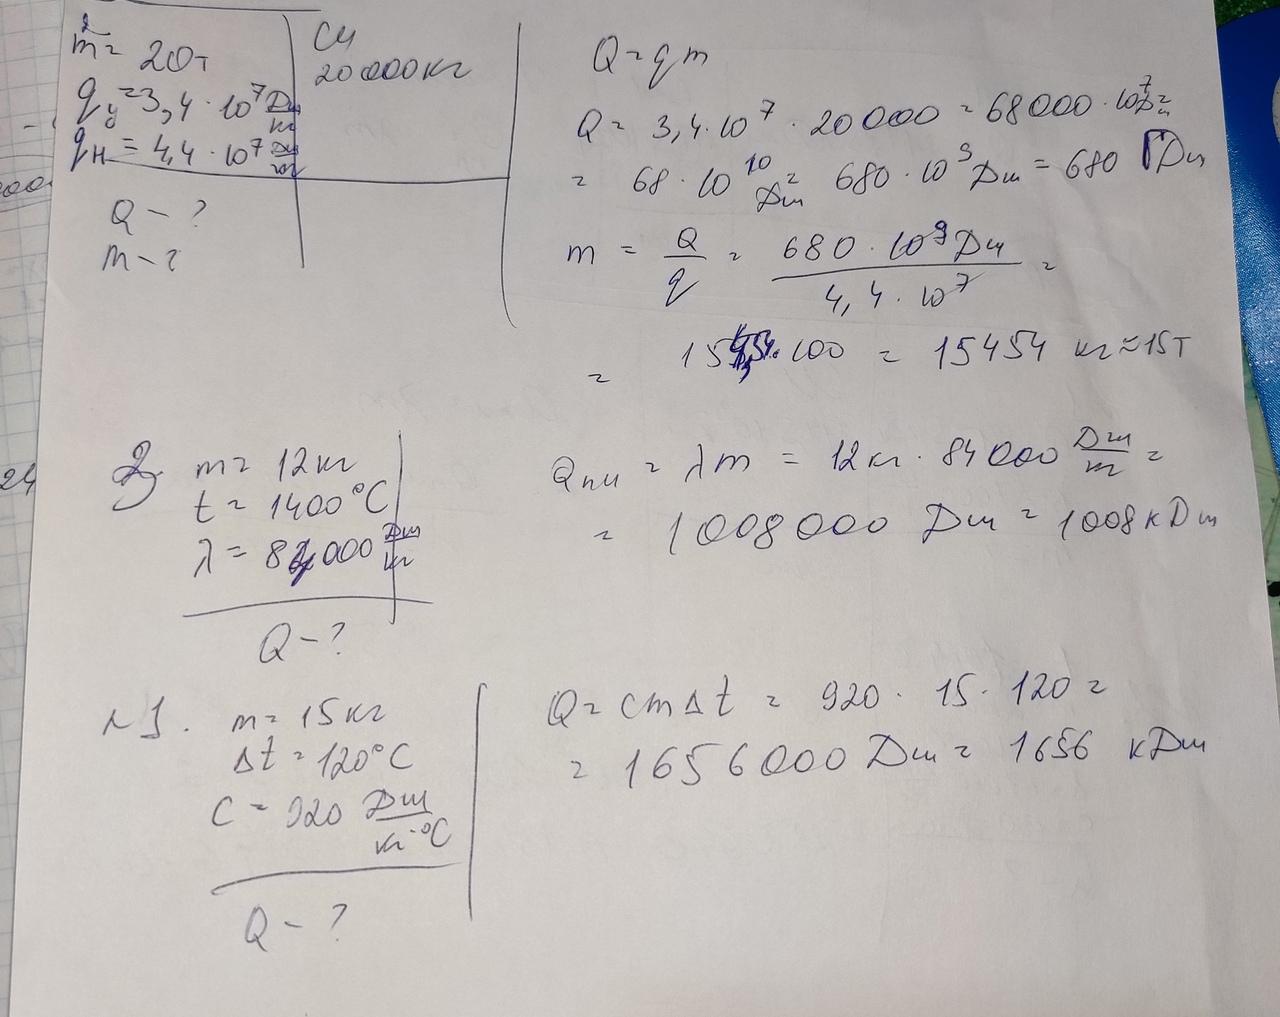 2
m = 20т
СИ
20 000 кг
qу = 3,4 · 10⁷ Дж/кг
qн = 4,4 · 10⁷ Дж/кг
Q - ?
m - ?
Q = qm
Q = 3,4 · 10⁷ · 20 000 = 68000 · 10⁷ Дж =
= 68 · 10¹⁰ Дж = 680 · 10⁹ Дж = 680 ГДж
m = Q/q = 680 · 10⁹ Дж / 4,4 · 10⁷ =
= · 100 = 15454 кг ≈ 15т
3
m = 12 кг
t = 1400 °C
λ = 84000 Дж/кг
Q - ?
Qпл = λm = 12 кг · 84000 Дж/m =
= 1008000 Дж = 1008 кДж
N1.
m = 15 кг
Δt = 120 °C
C = 920 Дж/кг·°C
Q - ?
Q = cmΔt = 920 · 15 · 120 =
= 1656000 Дж = 1656 кДж
24